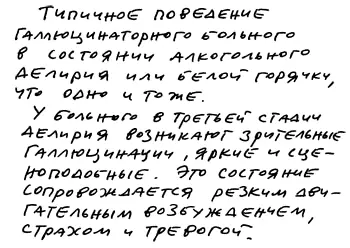 Типичное поведение
галлюцинаторного больного
в состоянии алкогольного
делирия или белой горячки,
что одно и тоже.
У больного в третьей стадии
делирия возникают зрительные
галлюцинации, яркие и сце-
ноподобные. Это состояние
сопровождается резким дви-
гательным возбуждением,
страхом и тревогой.